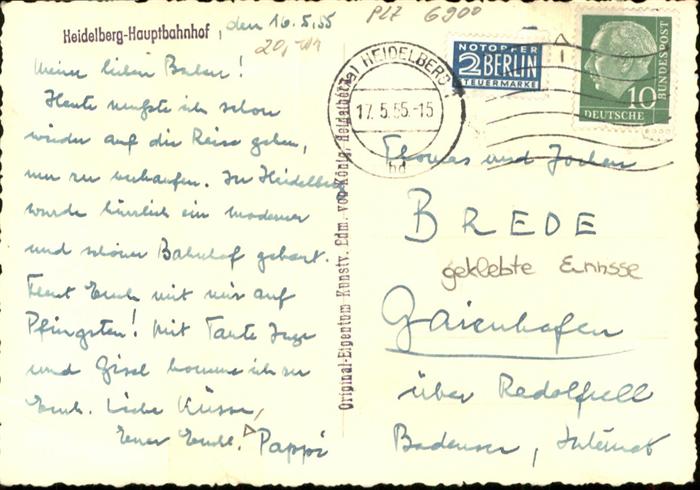 Heidelberg-Hauptbahnhof, den 16.5.55
PLZ 6900
20,-
Meine lieben Buben!
Heute mußte ich schon
wieder auf die Reise gehen,
um zu verkaufen. In Heidelberg
wurde kürzlich ein moderner
und schöner Bahnhof gebaut.
Freut Euch mit mir auf
Pfingsten! Mit Tante Inge
und Gisel komme ich zu
Euch. Liebe Küsse,
Euer Pappi
Original-Eigentum Kunstv. Edm. von König, Heidelberg
HEIDELBERG
17.5.55.-15
bd
NOTOPFER
2 BERLIN
STEUERMARKE
10
DEUTSCHE
BUNDESPOST
Thomas und Jochen
BREDE
geklebte
Gaienhofen
über Radolfzell
Bodensee, Internat